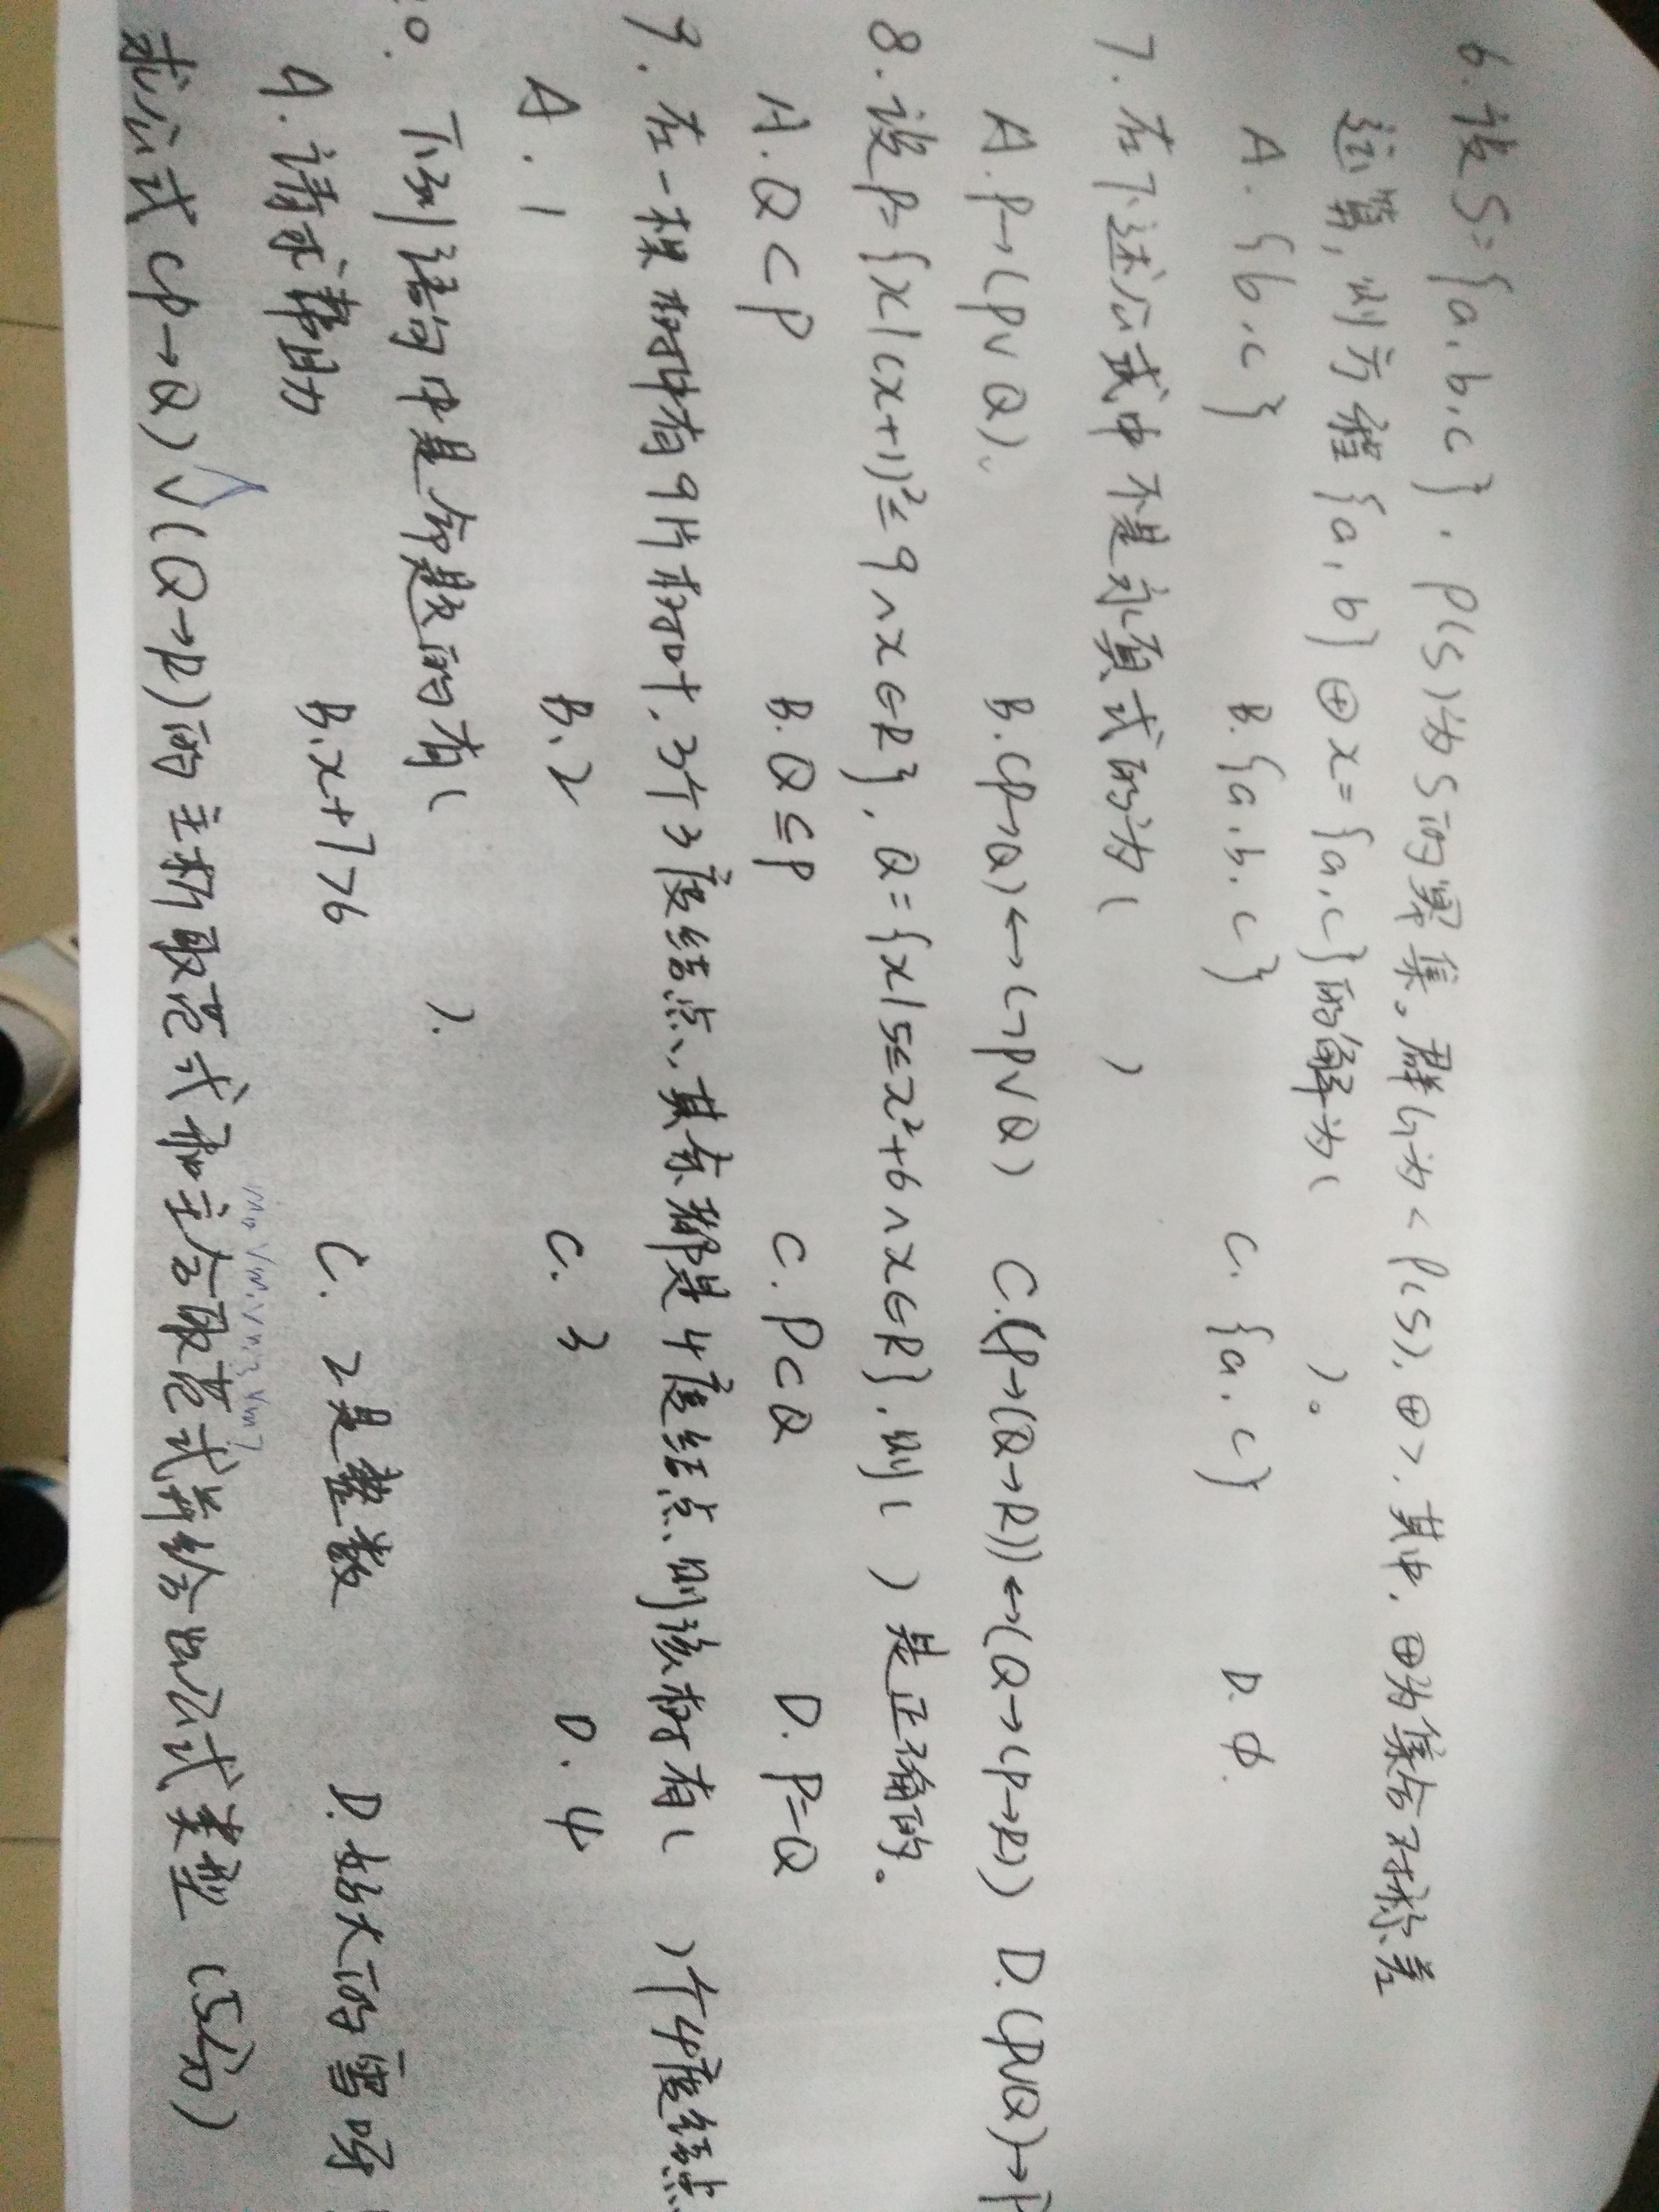 6.设S={a,b,c},P(S)为S的幂集。群G为<P(S),⊕>,其中,⊕为集合对称差
运算,则方程{a,b}⊕x={a,c}的解为( )。
A.{b,c} B.{a,b,c} C.{a,c} D.ф.
7.在下述公式中不是永真式的为( )
A.P→(P∨Q)、 B.(P→Q)↔(¬P∨Q) C.(P→(Q→R))↔(Q→(P→R)) D.(P∨Q)→P
8.设P={x|(x+1)²≤9∧x∈R},Q={x|5≤x²+6∧x∈R},则( )是正确的。
A.Q⊂P B.Q⊆P C.P⊂Q D.P=Q
9.在一棵树中有9片树叶,3个3度结点,其余都是4度结点,则该树有( )个4度结点
A.1 B.2 C.3 D.4
0.下列语句中是命题的有( ).
A.请求帮助 B.x+7>6 C.2是整数 D.好大的雪呀!
m0∨m1∨m3∨m7
∧
求公式(P→Q)∨(Q→R)的主析取范式和主合取范式并给出公式类型(5分)